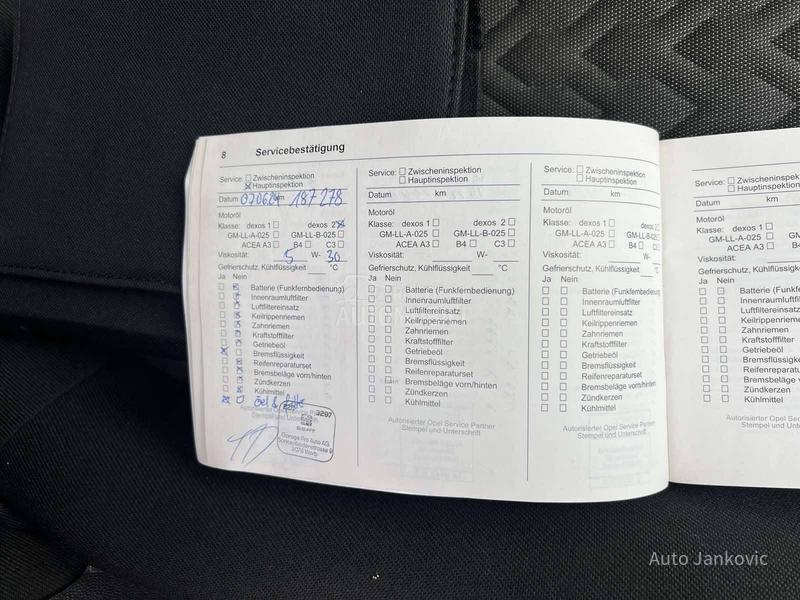 8 Servicebestätigung
Service: Zwischeninspektion
Hauptinspektion
Datum 187 278
Motoröl
Klasse: dexos 1 dexos 2
GM-LL-A-025 GM-LL-B-025
ACEA A3 B4 C3
Viskosität: 5 W- 30
Gefrierschutz, Kühlflüssigkeit °C
Ja Nein
Batterie (Funkfernbedienung)
Innenraumluftfilter
Luftfiltereinsatz
Keilrippenriemen
Zahnriemen
Kraftstofffilter
Getriebeöl
Bremsflüssigkeit
Reifenreparaturset
Bremsbeläge vorn/hinten
Zündkerzen
Kühlmittel
Autorisierter Opel Service Partner
Stempel und Unterschrift
3297
Garage Pro Auto AG
3076 Worb
Service: Zwischeninspektion
Hauptinspektion
Datum km
Motoröl
Klasse: dexos 1 dexos 2
GM-LL-A-025 GM-LL-B-025
ACEA A3 B4 C3
Viskosität: W-
Gefrierschutz, Kühlflüssigkeit °C
Ja Nein
Batterie (Funkfernbedienung)
Innenraumluftfilter
Luftfiltereinsatz
Keilrippenriemen
Zahnriemen
Kraftstofffilter
Getriebeöl
Bremsflüssigkeit
Reifenreparaturset
Bremsbeläge vorn/hinten
Zündkerzen
Kühlmittel
Autorisierter Opel Service Partner
Stempel und Unterschrift
Service: Zwischeninspektion
Hauptinspektion
Datum km
Motoröl
Klasse: dexos 1 dexos 2
GM-LL-A-025 GM-LL-B-025
ACEA A3 B4 C3
Viskosität: W-
Gefrierschutz, Kühlflüssigkeit
Ja Nein
Batterie (Funkfernbedienung)
Innenraumluftfilter
Luftfiltereinsatz
Keilrippenriemen
Zahnriemen
Kraftstofffilter
Getriebeöl
Bremsflüssigkeit
Reifenreparaturset
Bremsbeläge vorn/hinten
Zündkerzen
Kühlmittel
Autorisierter Opel Service Partner
Stempel und Unterschrift
Service:
Datum
Motoröl
Klasse: dexos 1
GM-LL-A-025
ACEA A3
Viskosität:
Gefrierschutz,
Ja Nein
Auto Jankovic